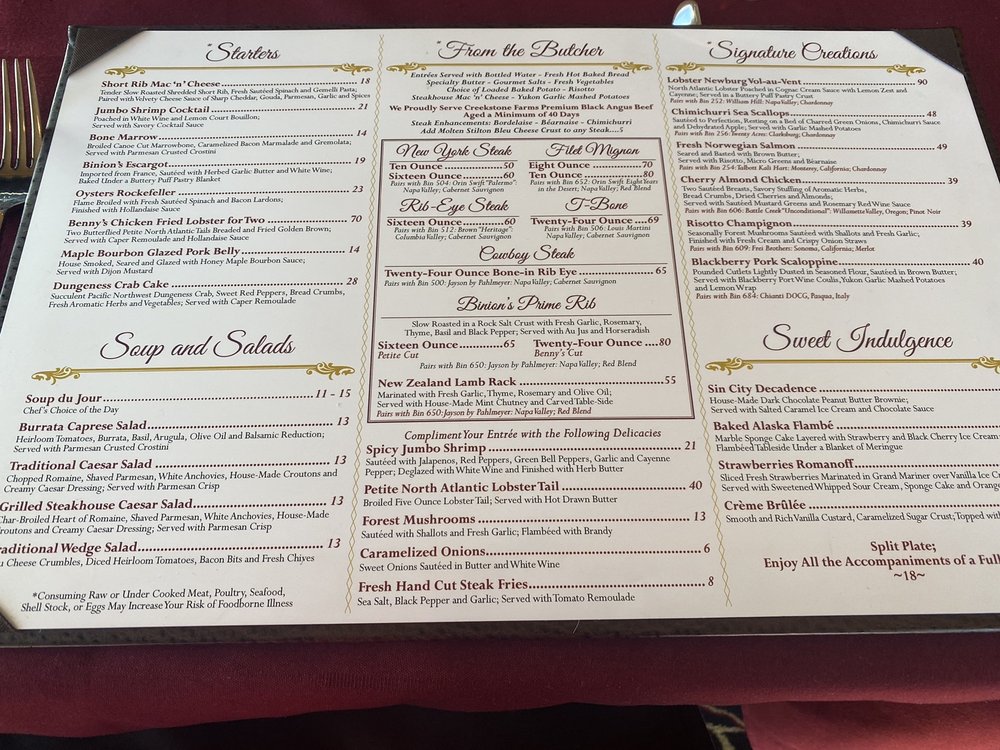 *Starters
Short Rib Mac 'n' Cheese 18
Tender Slow Roasted Shredded Short Rib, Fresh Sautéed Spinach and Gemelli Pasta;
Paired with Velvety Cheese Sauce of Sharp Cheddar, Gouda, Parmesan, Garlic and Spices
Jumbo Shrimp Cocktail 21
Poached in White Wine and Lemon Court Bouillon;
Served with Savory Cocktail Sauce
Bone Marrow 14
Broiled Canoe Cut Marrowbone, Caramelized Bacon Marmalade and Gremolata;
Served with Parmesan Crusted Crostini
Binion's Escargot 19
Imported from France, Sautéed with Herbed Garlic Butter and White Wine;
Baked Under a Buttery Puff Pastry Blanket
Oysters Rockefeller 23
Flame Broiled with Fresh Sautéed Spinach and Bacon Lardons;
Finished with Hollandaise Sauce
Benny's Chicken Fried Lobster for Two 70
Two Butterflied Petite North Atlantic Tails Breaded and Fried Golden Brown;
Served with Caper Remoulade and Hollandaise Sauce
Maple Bourbon Glazed Pork Belly 14
House Smoked, Seared and Glazed with Honey Maple Bourbon Sauce;
Served with Dijon Mustard
Dungeness Crab Cake 28
Succulent Pacific Northwest Dungeness Crab, Sweet Red Peppers, Bread Crumbs,
Fresh Aromatic Herbs and Vegetables; Served with Caper Remoulade
Soup and Salads
Soup du Jour 11 - 15
Chef's Choice of the Day
Burrata Caprese Salad 13
Heirloom Tomatoes, Burrata, Basil, Arugula, Olive Oil and Balsamic Reduction;
Served with Parmesan Crusted Crostini
Traditional Caesar Salad 13
Chopped Romaine, Shaved Parmesan, White Anchovies, House-Made Croutons and
Creamy Caesar Dressing; Served with Parmesan Crisp
Grilled Steakhouse Caesar Salad 13
Char-Broiled Heart of Romaine, Shaved Parmesan, White Anchovies, House-Made
Croutons and Creamy Caesar Dressing; Served with Parmesan Crisp
Traditional Wedge Salad 13
Cheese Crumbles, Diced Heirloom Tomatoes, Bacon Bits and Fresh Chives
*Consuming Raw or Under Cooked Meat, Poultry, Seafood,
Shell Stock, or Eggs May Increase Your Risk of Foodborne Illness
*From the Butcher
Entrées Served with Bottled Water - Fresh Hot Baked Bread
Specialty Butter - Gourmet Salts - Fresh Vegetables
Choice of Loaded Baked Potato - Risotto
Steakhouse Mac 'n' Cheese - Yukon Garlic Mashed Potatoes
We Proudly Serve Creekstone Farms Premium Black Angus Beef
Aged a Minimum of 40 Days
Steak Enhancements: Bordelaise - Béarnaise - Chimichurri
Add Molten Stilton Bleu Cheese Crust to any Steak....5
New York Steak
Ten Ounce 50
Sixteen Ounce 60
Pairs with Bin 504: Orin Swift "Palermo":
Napa Valley; Cabernet Sauvignon
Filet Mignon
Eight Ounce 70
Ten Ounce 80
Pairs with Bin 652: Orin Swift Eight Years
in the Desert; Napa Valley; Red Blend
Rib-Eye Steak
Sixteen Ounce 60
Pairs with Bin 512: Brown "Heritage":
Columbia Valley; Cabernet Sauvignon
T-Bone
Twenty-Four Ounce 69
Pairs with Bin 506: Louis Martini
Napa Valley; Cabernet Sauvignon
Cowboy Steak
Twenty-Four Ounce Bone-in Rib Eye 65
Pairs with Bin 500: Jayson by Pahlmeyer: Napa Valley; Cabernet Sauvignon
Binion's Prime Rib
Slow Roasted in a Rock Salt Crust with Fresh Garlic, Rosemary,
Thyme, Basil and Black Pepper; Served with Au Jus and Horseradish
Sixteen Ounce 65 Twenty-Four Ounce 80
Petite Cut Benny's Cut
Pairs with Bin 650: Jayson by Pahlmeyer: Napa Valley; Red Blend
New Zealand Lamb Rack 55
Marinated with Fresh Garlic, Thyme, Rosemary and Olive Oil;
Served with House-Made Mint Chutney and Carved Table-Side
Pairs with Bin 650: Jayson by Pahlmeyer: Napa Valley; Red Blend
Compliment Your Entrée with the Following Delicacies
Spicy Jumbo Shrimp 21
Sautéed with Jalapenos, Red Peppers, Green Bell Peppers, Garlic and Cayenne
Pepper; Deglazed with White Wine and Finished with Herb Butter
Petite North Atlantic Lobster Tail 40
Broiled Five Ounce Lobster Tail; Served with Hot Drawn Butter
Forest Mushrooms 13
Sautéed with Shallots and Fresh Garlic; Flambéed with Brandy
Caramelized Onions 6
Sweet Onions Sautéed in Butter and White Wine
Fresh Hand Cut Steak Fries 8
Sea Salt, Black Pepper and Garlic; Served with Tomato Remoulade
*Signature Creations
Lobster Newburg Vol-au-Vent 90
North Atlantic Lobster Poached in Cognac Cream Sauce with Lemon Zest and
Cayenne; Served in a Buttery Puff Pastry Crust
Pairs with Bin 252: William Hill: Napa Valley; Chardonnay
Chimichurri Sea Scallops 48
Sautéed to Perfection, Resting on a Bed of Charred Green Onions, Chimichurri Sauce
and Dehydrated Apple; Served with Garlic Mashed Potatoes
Pairs with Bin 256: Twenty Acres: Clarksburg; Chardonnay
Fresh Norwegian Salmon 49
Seared and Basted with Brown Butter;
Served with Risotto, Micro Greens and Béarnaise
Pairs with Bin 254: Talbott Kali Hart: Monterey, California; Chardonnay
Cherry Almond Chicken 39
Two Sautéed Breasts, Savory Stuffing of Aromatic Herbs,
Bread Crumbs, Dried Cherries and Almonds;
Served with Sautéed Mustard Greens and Rosemary Red Wine Sauce
Pairs with Bin 606: Battle Creek "Unconditional": Willamette Valley, Oregon; Pinot Noir
Risotto Champignon 39
Seasonally Forest Mushrooms Sautéed with Shallots and Fresh Garlic,
Finished with Fresh Cream and Crispy Onion Straws
Pairs with Bin 609: Frei Brothers: Sonoma, California; Merlot
Blackberry Pork Scaloppine 40
Pounded Cutlets Lightly Dusted in Seasoned Flour, Sautéed in Brown Butter;
Served with Blackberry Port Wine Coulis, Yukon Garlic Mashed Potatoes
and Lemon Wrap
Pairs with Bin 684: Chianti DOCG, Pasqua, Italy
Sweet Indulgence
Sin City Decadence
House-Made Dark Chocolate Peanut Butter Brownie;
Served with Salted Caramel Ice Cream and Chocolate Sauce
Baked Alaska Flambé
Marble Sponge Cake Layered with Strawberry and Black Cherry Ice Cream
Flambéed Tableside Under a Blanket of Meringue
Strawberries Romanoff
Sliced Fresh Strawberries Marinated in Grand Mariner over Vanilla Ice
Served with Sweetened Whipped Sour Cream, Sponge Cake and Orange
Crème Brûlée
Smooth and Rich Vanilla Custard, Caramelized Sugar Crust; Topped with
Split Plate;
Enjoy All the Accompaniments of a Full
~18~